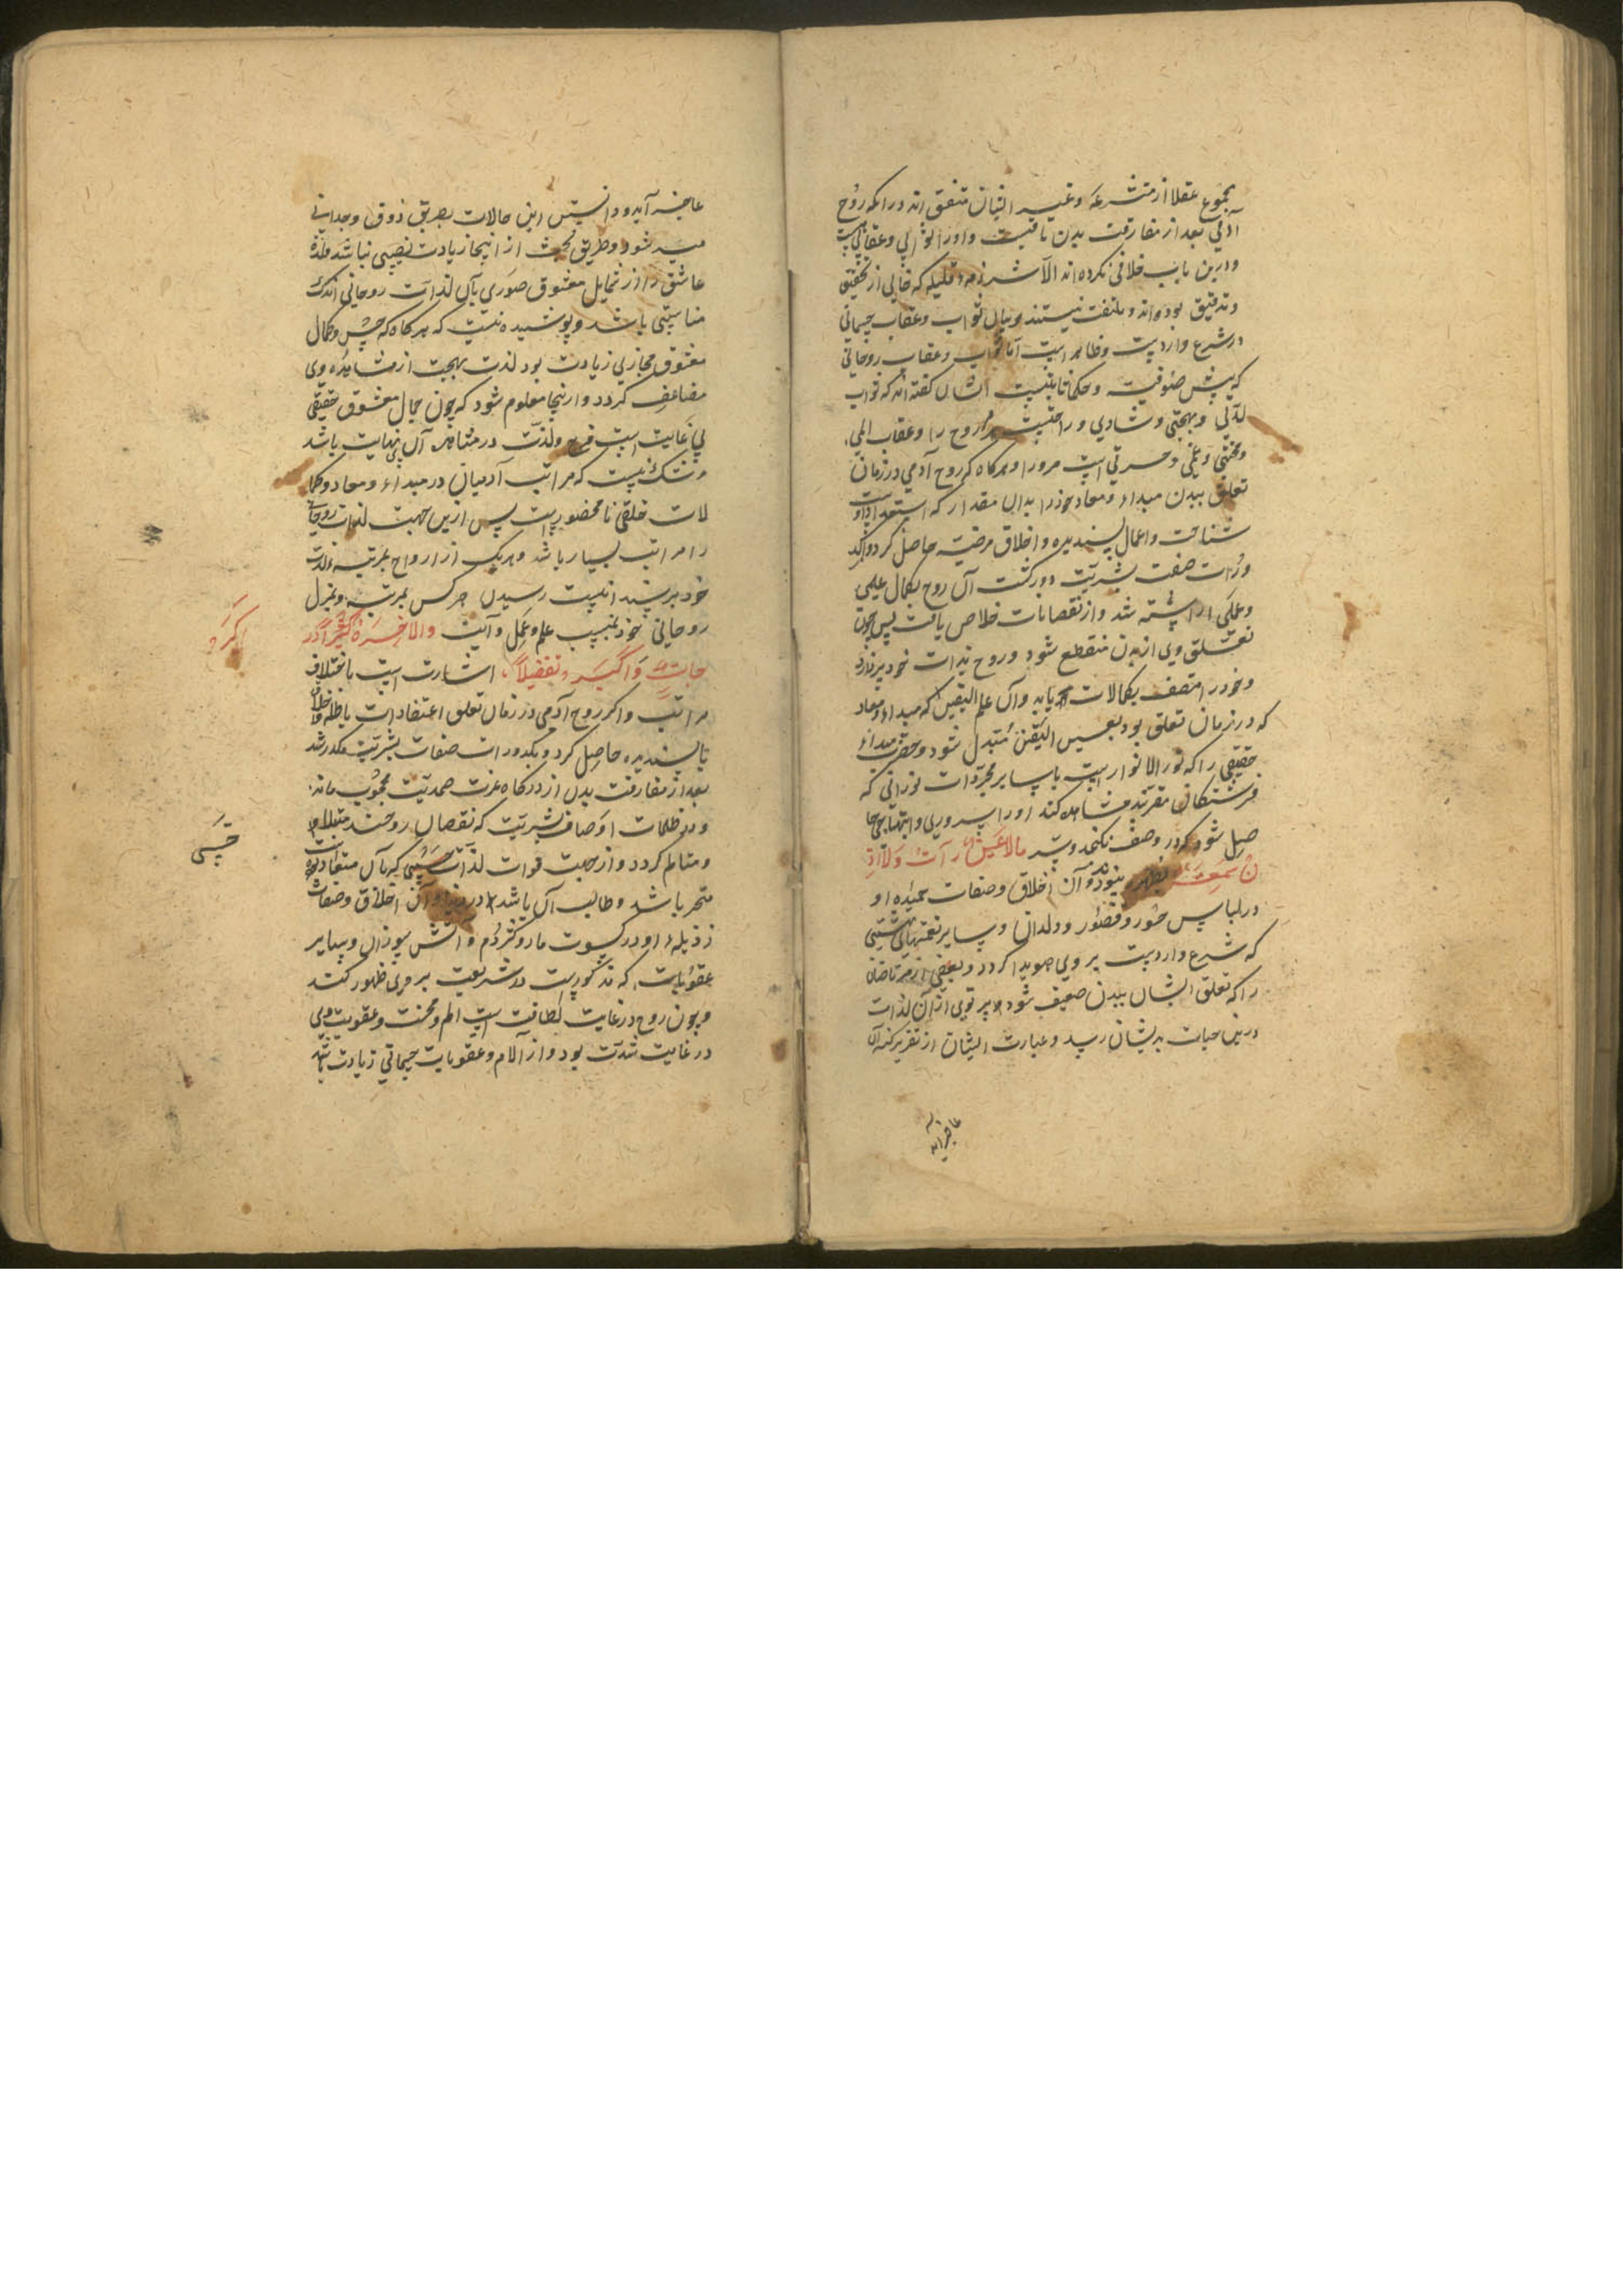 مجموع عقلا از متشرعه و غیر ایشان متفق اند در انکه روح
آدمی بعد از مفارقت بدن باقیست و او را ثوابی و عقابی هست
و درین باب خلافی نکرده اند الا شرذمه قلیله که خالی از تحقیق
و تدقیق بوده اند و ملتفت نیستند و بیان ثواب و عقاب جسمانی
در شرع واردست و ظاهر است اما ثواب و عقاب روحانی
که پیش صوفیه و حکما ثابتست ایشان کفته اند که ثواب
لذتی و بهجتی و شادی و راحتیست مر روح را و عقاب المی
و محنتی و غمی و حسرتی است مرورا و هرکاه که روح آدمی در زمان
تعلق ببدن مبداء و معاد خود را بدان مقدار که استعداد اوست
شناخت و اعمال پسندیده و اخلاق مرضیه حاصل کرد و از کد
ورات صفت بشریت دور کشت آن روح بکمال علمی
و عملی اراسته شد و از نقصانات خلاص یافت پس چون
تعلق وی از بدن منقطع شود و روح بذات خود پردازد
و خود را متصف بکمالات یابد و آن علم الیقین که مبداء و معاد
که در زمان تعلق بود بعین الیقین متبدل شود و حضرت مبداء
حقیقی را که نور الانوار است با سایر مجردات نورانی که
فرشتکان مقربند مشاهده کند او را سروری و ابتهاجی حا
صل شود که در وصف نکنجد و سر مالا عین رات ولا اذ
ن سمعت بظهور پیوندد و آن اخلاق و صفات حمیده او
در لباس حور و قصور و ولدان و سایر نعمتهای بهشتی
که شرع واردست بر وی هویدا کردد و بعضی از مرتاضان
را که تعلق ایشان ببدن ضعیف شود پرتوی از آن لذات
درین حیات بدیشان رسد و عبارت ایشان از تقریر کنه آن
عاجز آید
عاجز آید و دانستن این حالات بطریق ذوق و وجدانی
میسر شود و طریق بحث از اینجا زیادت نصیبی نباشد و لذة
عاشق را از شمایل معشوق صوری بآن لذات روحانی اندک
مناسبتی باشد و پوشیده نیست که هرکاه که حسن و کمال
معشوق مجازی زیادت بود لذت بهجت از مشاهده وی
مضاعف کردد و ازینجا معلوم شود که چون جمال معشوق حقیقی
بی غایت است فرح و لذت در مشاهده آن بی نهایت باشد
و شک نیست که مراتب آدمیان در مبداء و معاد و کما
لات خلقی نامحصور است پس ازین جهت لذات روحانی
را مراتب بسیار باشد و هریک از ارواح بمرتبه و لذت
خود برسند رسیدن هر کس بمرتبه و منزل
روحانی خود بسبب علم و عمل و آیت والاخرة اکبر در
جات و اکبر تفضیلا اشارت است باختلاف
اکبر
مراتب و اکر روح آدمی در زمان تعلق اعتقادات باطله و اخلاق
ناپسندیده حاصل کرد و بکدورات صفات بشریت مکدر شد
بعد از مفارقت بدن از درکاه عزت صمدیت محجوب ماند
و در ظلمات اوصاف بشریت که نقصان روحند مبتلا
حسی
و متالم کردد و از جهت فوات لذات حسی که بآن معتاد بوده
متحسر باشد و طالب آن باشد و آن اخلاق و صفات
رذیله او در کسوت مار و کژدم و آتش سوزان و سایر
عقوبات که مذکورست در شریعت بر وی ظهور کند
و چون روح در غایت لطافت است الم و محنت و عقوبت وی
در غایت شدت بود و از آلام و عقوبات جسمانی زیادت باشد